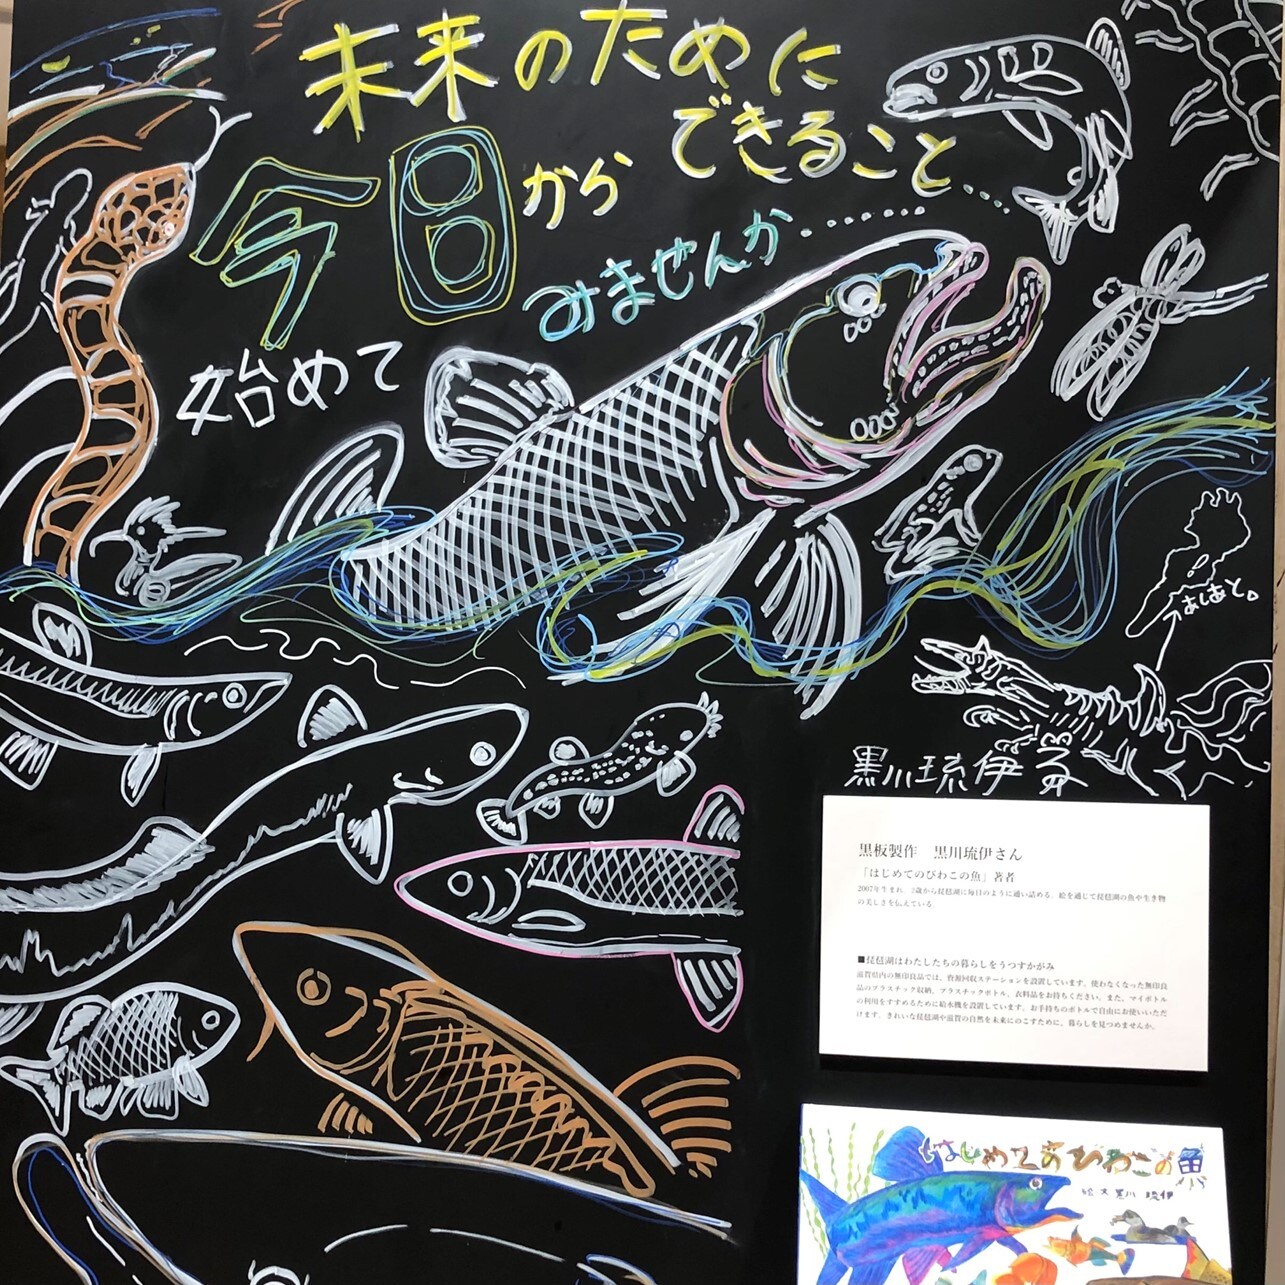 未来のために
できること……
今日から
始めて
みませんか………
つながると。
黒川琉伊
黒板製作　黒川琉伊さん
「はじめてのびわこの魚」著者
2007年生まれ。2歳から琵琶湖に毎日のように通い詰める。絵を通じて琵琶湖の魚や生き物
の美しさを伝えている。
■琵琶湖はわたしたちの暮らしをうつすかがみ
滋賀県内の無印良品では、資源回収ステーションを設置しています。使わなくなった無印良
品のプラスチック収納、プラスチックボトル、衣料品をお持ちください。また、マイボトル
の利用をすすめるために給水機を設置しています。お手持ちのボトルで自由にお使いいただ
けます。きれいな琵琶湖や滋賀の自然を未来にのこすために、暮らしを見つめませんか。
はじめてのびわこの魚
絵 文 黒川 琉伊